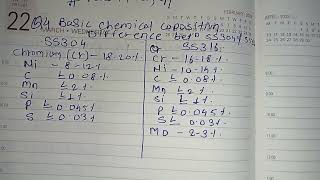 22
Q4 Basic chemical coposition
Difference betn SS304 &
SS304
Chromium (Cr) - 18-20%
Ni - 8-12%
C ≤ 0.08%
Mn ≤ 2%
Si ≤ 1%
P ≤ 0.045%
S ≤ 0.03%
SS316
Cr - 16-18%
Ni - 10-14%
C ≤ 0.08%
Mn ≤ 2%
Si ≤ 1%
P ≤ 0.045%
S ≤ 0.03%
Mo - 2-3%